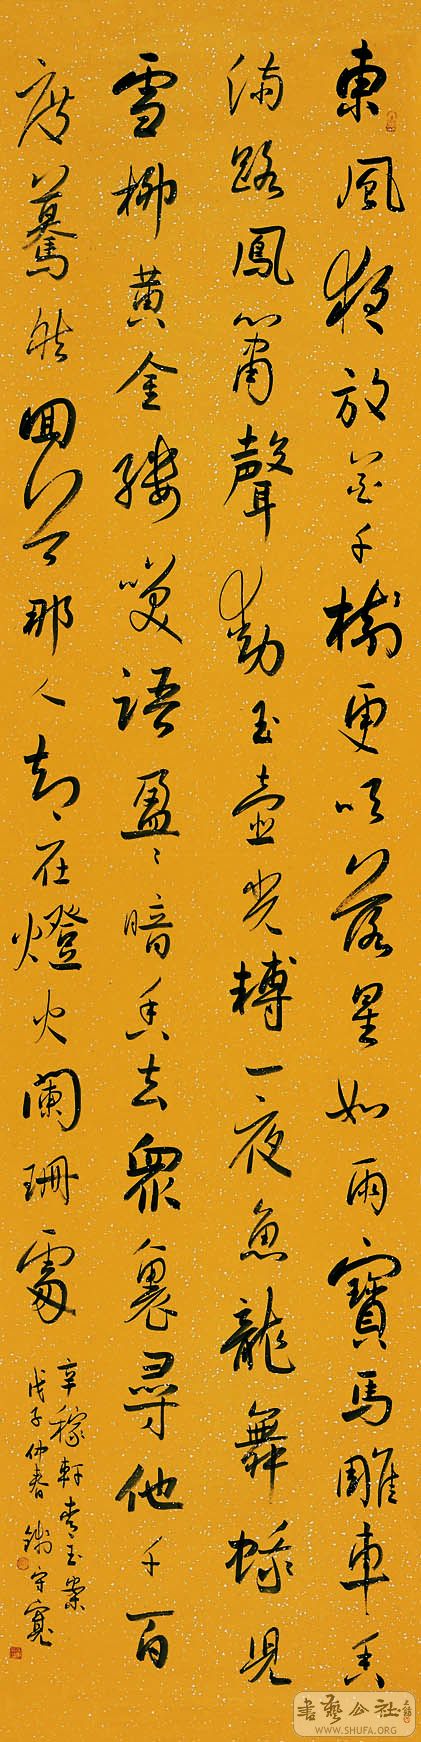 東風夜放花千樹更吹落星如雨寶馬雕車香
滿路鳳簫聲動玉壺光轉一夜魚龍舞蛾兒
雪柳黃金縷笑語盈〻暗香去衆裏尋他千百
度驀然回首那人却在燈火闌珊處
辛稼軒青玉案
戊子仲春 守寬
書藝公社
WWW.SHUFA.ORG